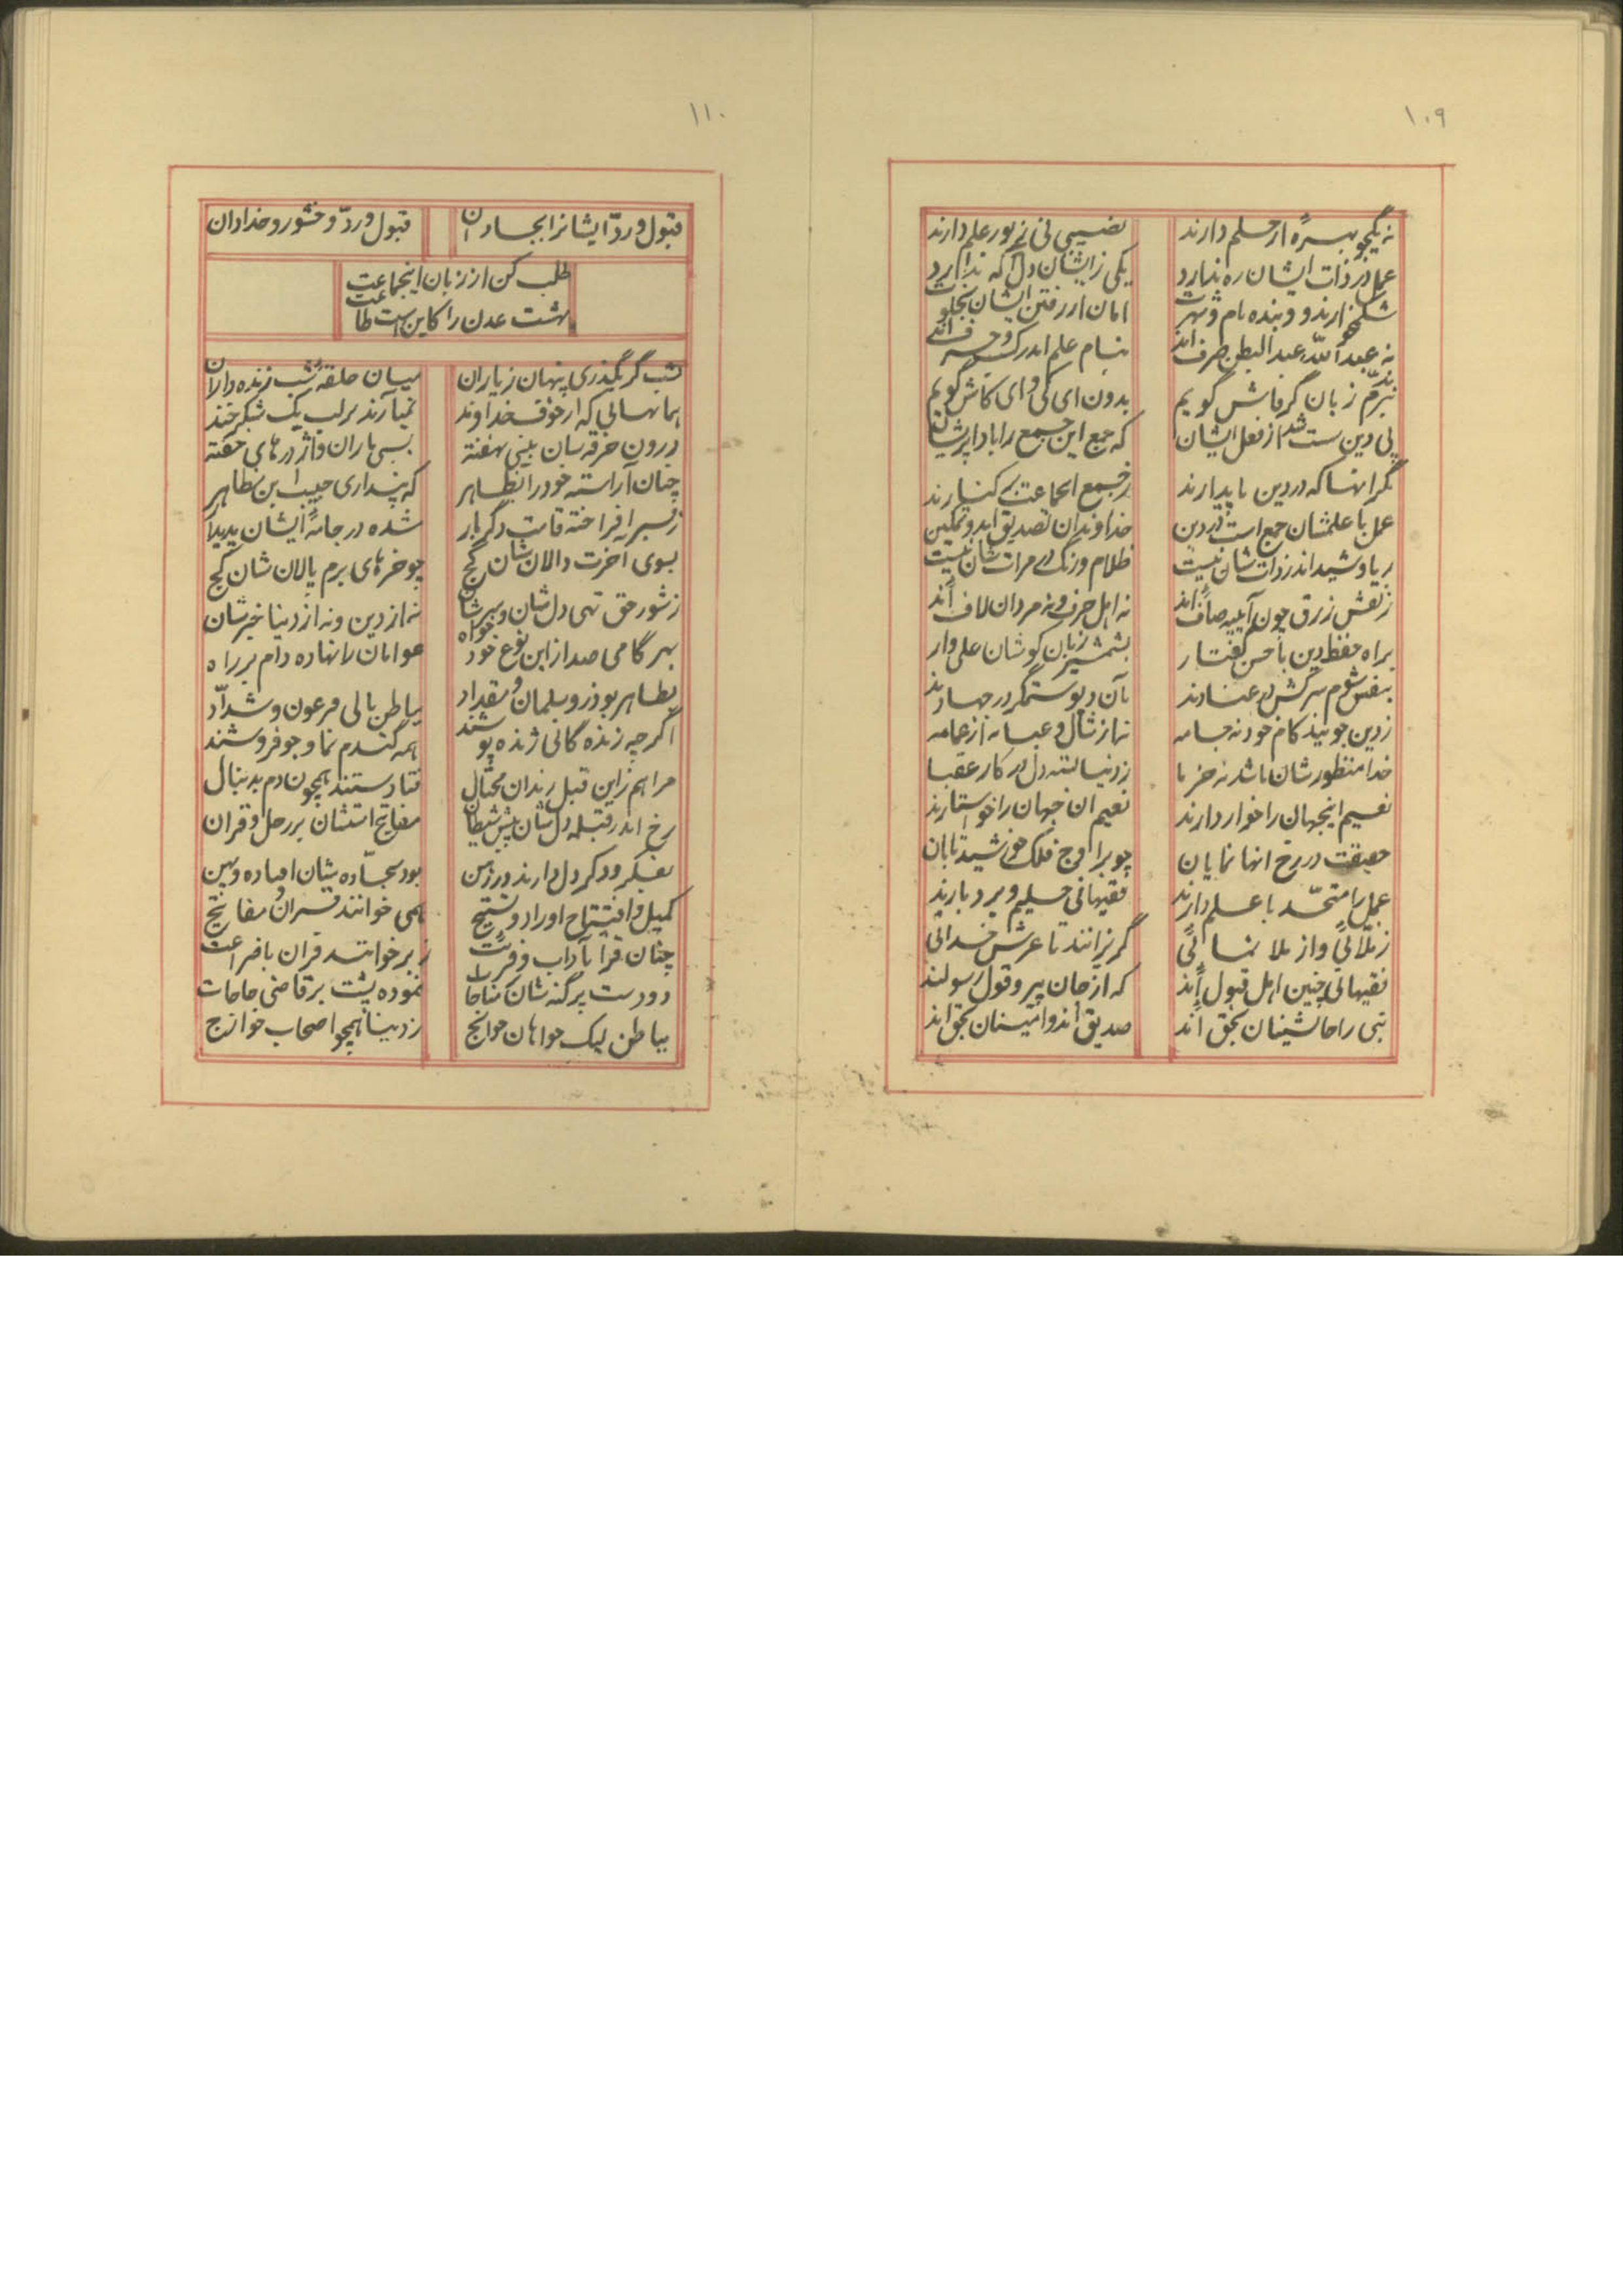 ۱۰۹
نه یکجو بهره از حلم دارند
نصیبی نی ز نور علم دارند
عمل در ذات ایشان ره ندارد
یکی زایشان دل آگه ندارد
شکمخوارند و بنده نام و شهرت
امان از رفتن ایشان بخلوت
نه عبدالله عبدالبطن صرف‌اند
بنام علم اندر کسب و حرف‌اند
نبرم زبان گر فاش گویم
بدون ای کی و ای کاش گویم
پی دین سست شد از فعل ایشان
که جمع این جمع را بادا پریشان
مگر آنها که در دین پایدارند
ز جمع این جماعت بر کنارند
عمل با علمشان جمع است در دین
خداوندان تصدیق‌اند و تمکین
ریا و شید اندر ذات‌شان نیست
ظلام و زنگ در مرات‌شان نیست
ز نقش زرق چون آیینه صاف‌اند
نه اهل حرف و نه مردان لاف‌اند
براه حفظ دین با حسن گفتار
بشمشیر زبان کوشان علی‌وار
بنفس شوم سرکش در عنادند
بآن دیو ستمگر در جهادند
ز دین جویند کام خود نه جامه
نه از شال و عبا نه از عمامه
خدا منظورشان باشد نه خرما
ز دنیا بسته دل در کار عقبا
نعیم اینجهان را خوار دارند
نعیم آن جهان را خواستارند
حقیقت در رخ آنها نمایان
چو بر اوج فلک خورشید تابان
عمل را متحد با علم دارند
فقیهانی حلیم و بردبارند
ز ملائی و از ملا نمائی
گریزانند تا عرش خدائی
فقیهانی چنین اهل قبول‌اند
که از جان پیرو قول رسولند
نبی را جانشینان بحق‌اند
صدیق‌اند و امینان بحق‌اند
۱۱۰
قبول و رد ایشانرا بجا دان
قبول و رد وخشور و خدا دان
طلب کن از زبان اینجماعت
بهشت عدن را کاین است طاعت
شب گر بگذری پنهان ز یاران
میان حلقهٔ شب زنده‌داران
همانهائی که از خوف خداوند
نمیآرند بر لب یک شکرخند
درون خرقه‌شان بینی نهفته
بسی ماران و اژدرهای خفته
چنان آراسته خود را بظاهر
که پنداری حبیب ابن مظاهر
ز قبر افراخته قامت دگر بار
شده در جامهٔ ایشان پدیدار
بسوی آخرت دالان‌شان کج
چو خرهای برم پالان‌شان کج
ز شور حق تهی دل‌شان و سرشان
نه از دین و نه از دنیا خبرشان
بهر گامی صد از این نوع خودخواه
عوامان را نهاده دام بر راه
بظاهر بوذر و سلمان و مقداد
بباطن تالی فرعون و شداد
اگر چه زنده گانی ژنده پوشند
همه گندم نما و جو فروشند
مرا هم زاین قبل رندان محتال
فتادستند همچون دم بدنبال
رخ اندر قبله دل‌شان پیش شیطان
مفاتیح استشان بر رحل و قرآن
بفکر و ذکر دل دارند
بود سجاده‌شان افتاده
کمیل و افتتاح اوراد و تسبیح
همی خوانند قرآن و مفاتیح
چنان قرا بآداب و قرائت
ز بر خوانند قرآن با ضراعت
دو دست پر گنه‌شان مناجات
نموده پشت بر قاضی حاجات
بباطن لیک خواهان حوائج
ز دین همچو اصحاب خوارج